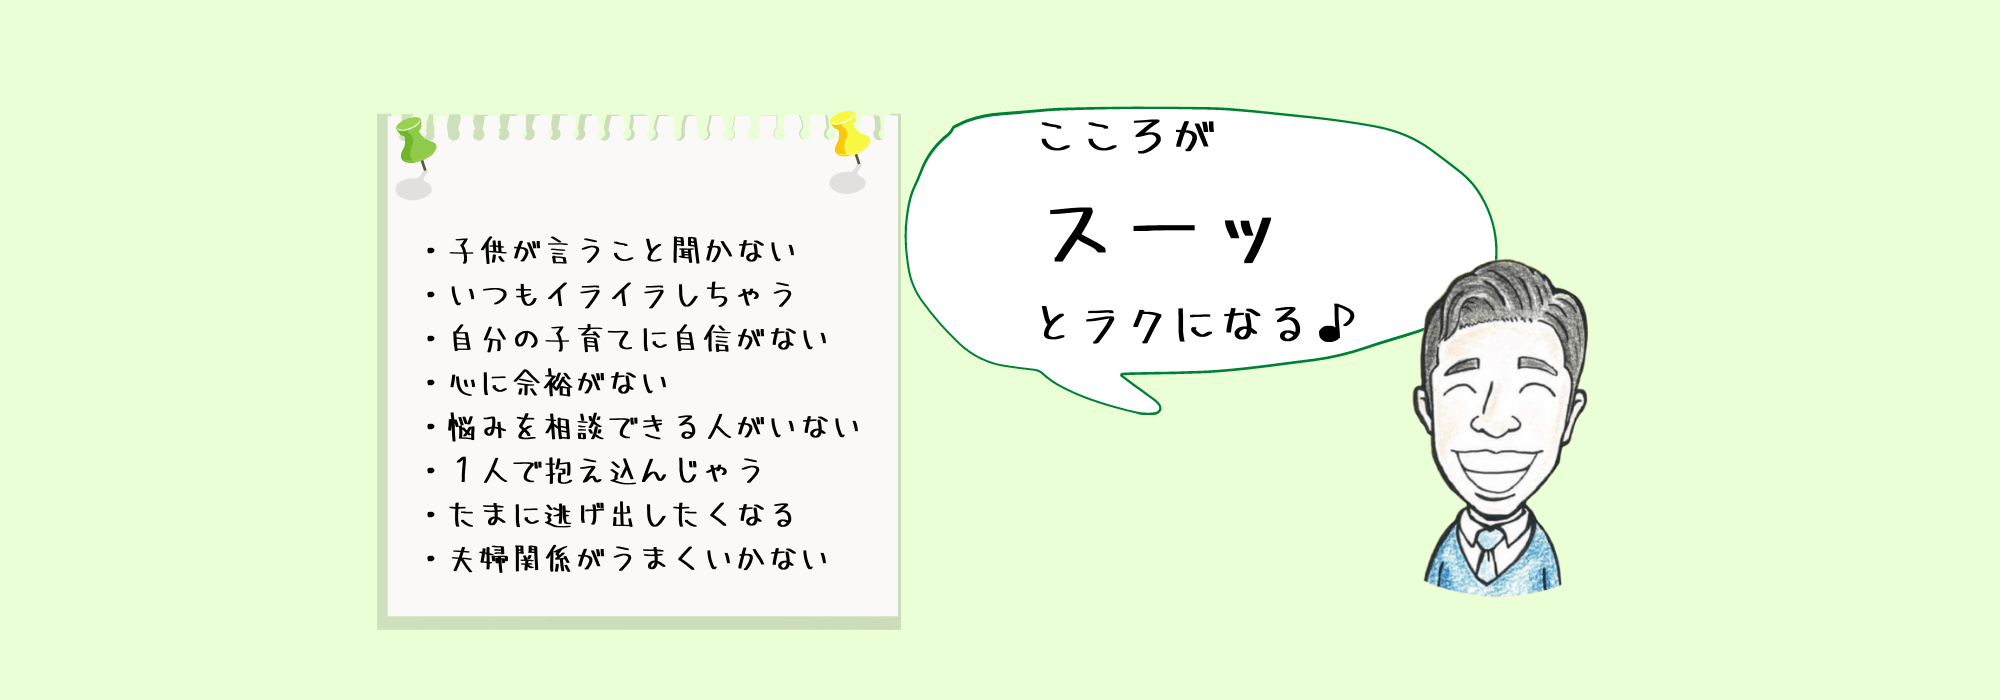 ・子供が言うこと聞かない
・いつもイライラしちゃう
・自分の子育てに自信がない
・心に余裕がない
・悩みを相談できる人がいない
・１人で抱え込んじゃう
・たまに逃げ出したくなる
・夫婦関係がうまくいかない
こころが
スーッ
とラクになる♪